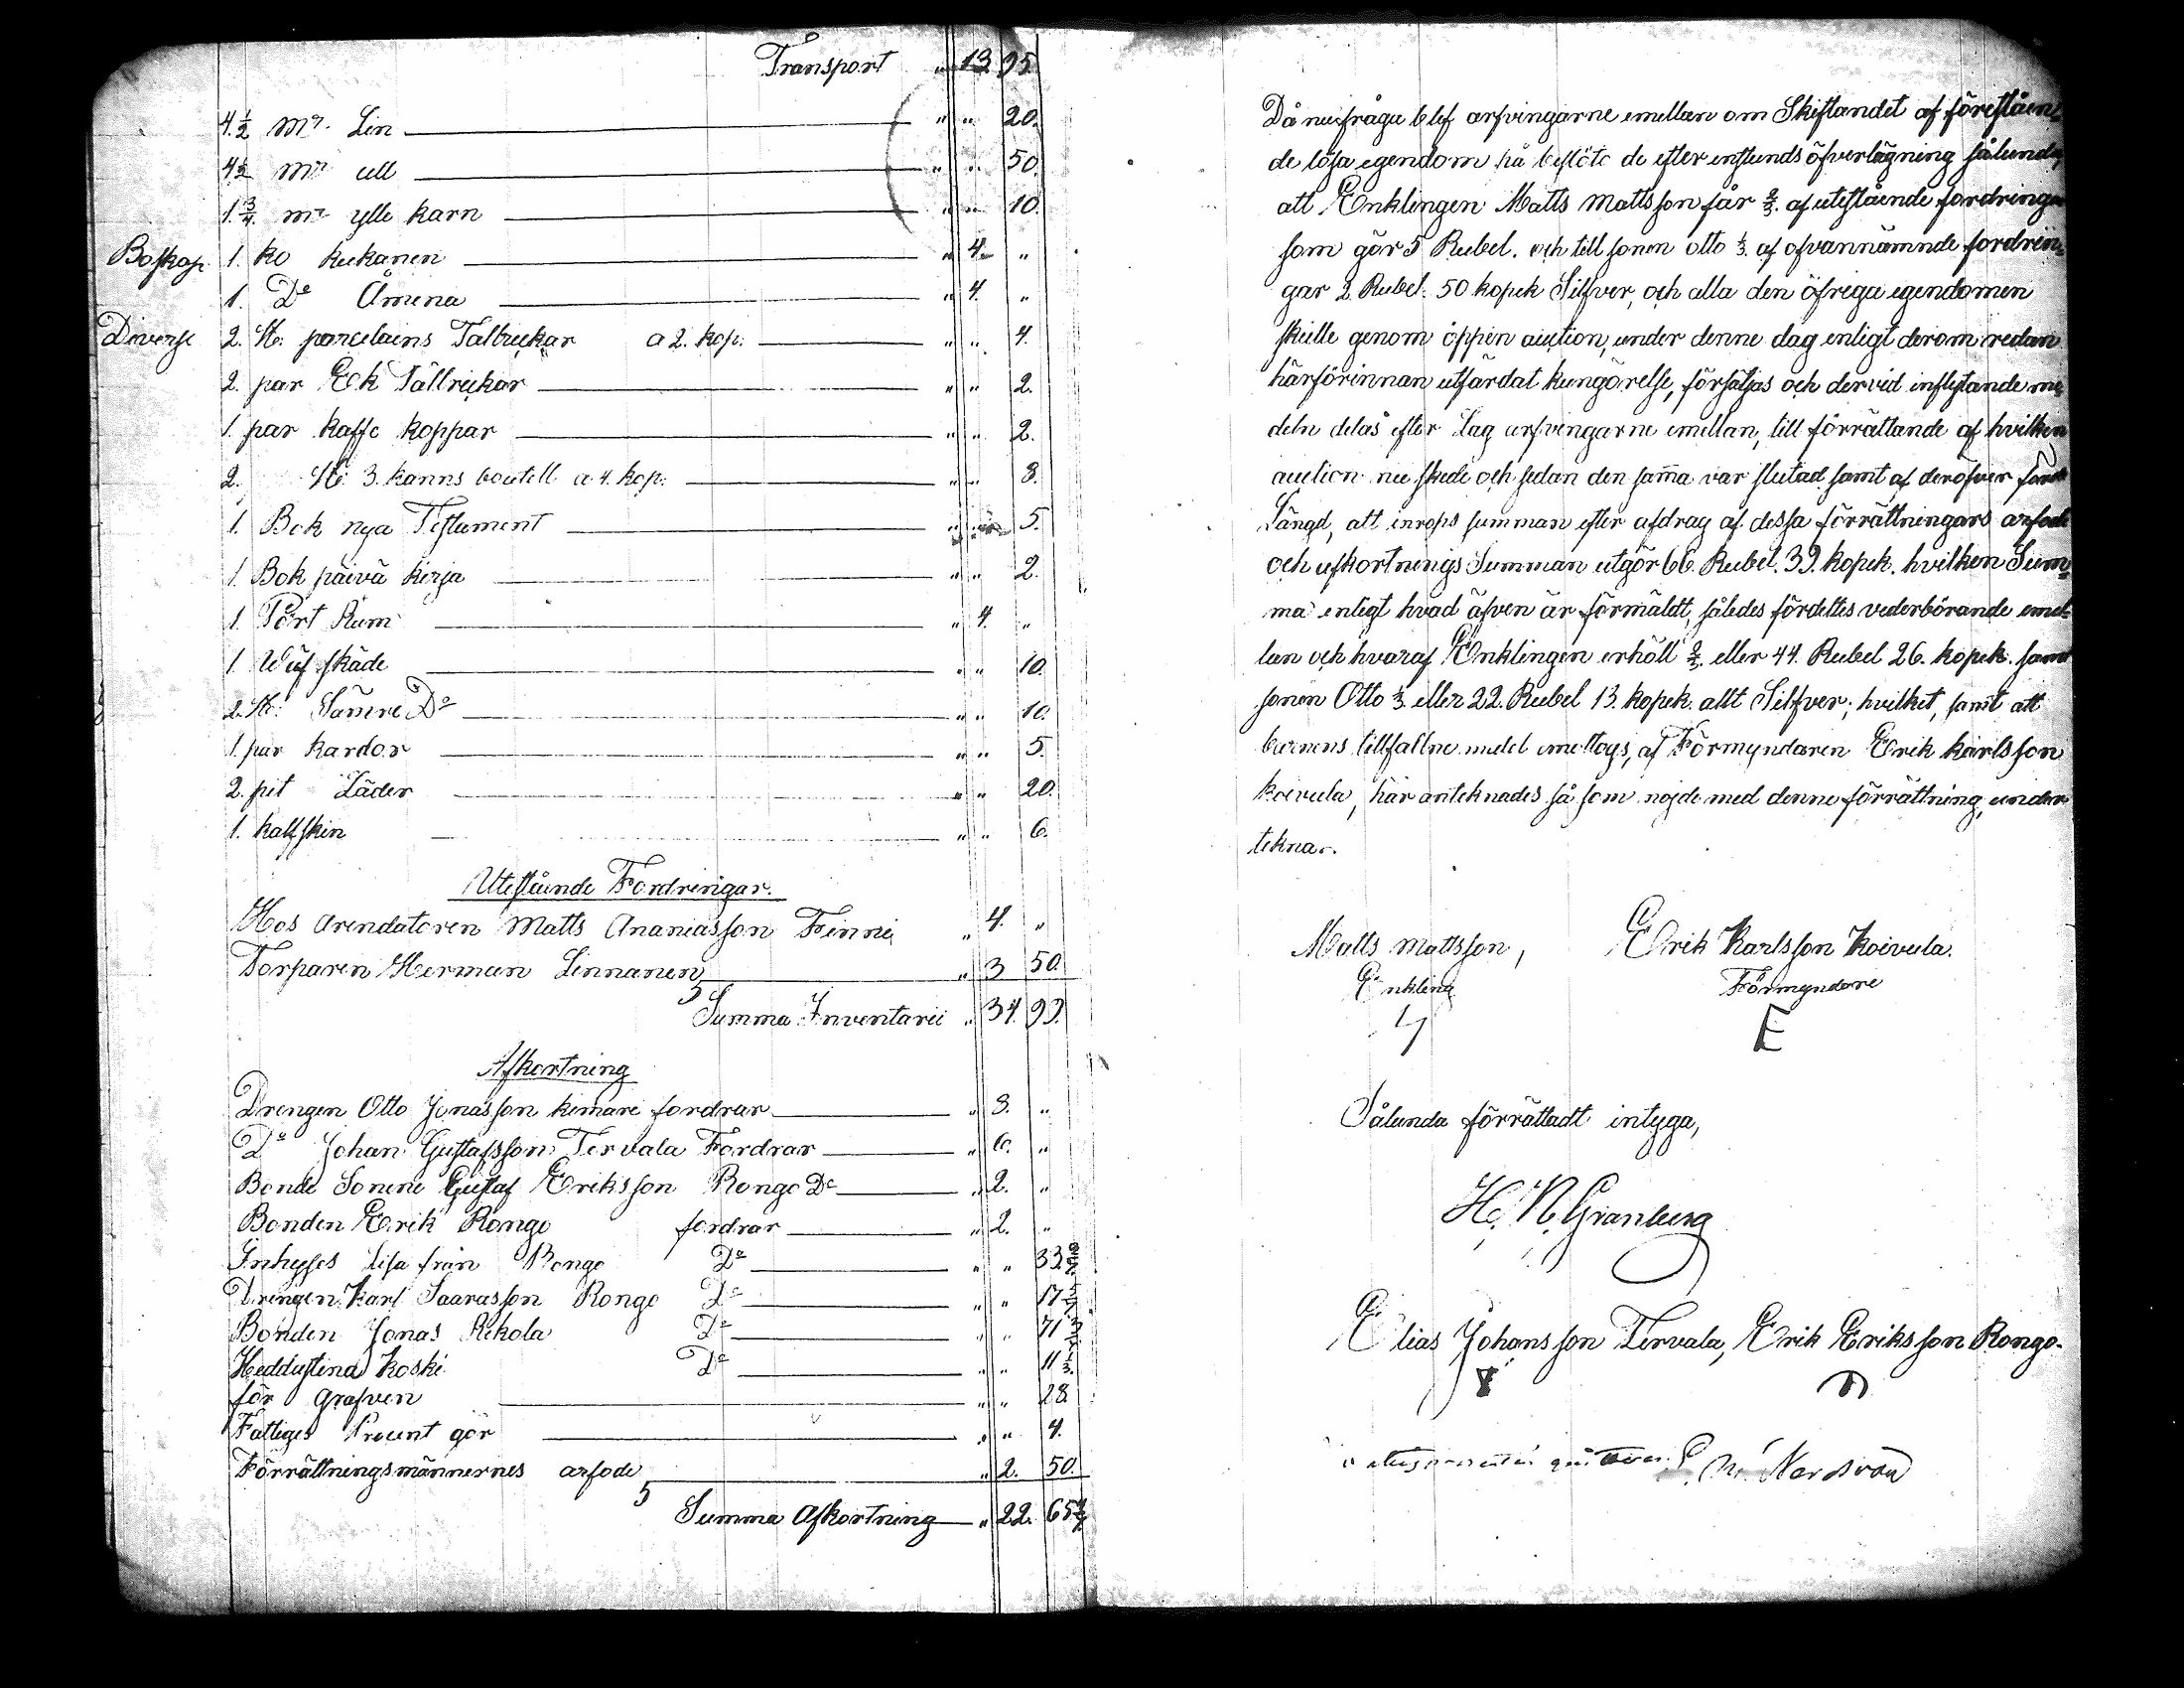 Transport " 13. 95.
4.½ mr. Lin " " 20.
4½ mr ull " " 50.
1.¾. mr ylle karn " " 10.
Boskap 1. ko kukanen " 4. "
1. Do Ämena " 4. "
Diverse 2. St. porcelains Taltrickar a 2. kop. " " 4.
2. par Ek Tältrickar " " 2.
1. par kaffe koppar " " 2.
2. St: 3. kanns boutell a 4. kop. " " 8.
1. Bok nya Testament " " 5.
1. Bok päivä kirja " " 2.
1. Pört Rum " 4. "
1. Wäf skäde " " 10.
2. St: Sämre Do " " 10.
1. par kardor " " 5.
2. pit Läder " " 20.
1. kalfskin " " 6.
Utestående Fordringar.
Hos Arendatoren Matts Ananiasson Finni " 4. "
Torparen Herman Linnanen " 3 50.
Summa Inventarii " 34. 99.
Afkortning
Drengen Otto Jonasson kimari fordrar " 8. "
Do Johan Gustafsson Tervala Fordrar " 6. "
Bonde Sonene Gustaf Eriksson Rongo Do " 2. "
Bonden Erik Rongo fordrar " 2. "
Inhyses Lisa från Rongo Do " " 33
Drengen Karl Saarasson Rongo Do " " 17
Bonden Jonas Rekola Do " " 71
Heddustina Koski Do " " 11⅓.
för grafven " " 28.
Fattiges Procent gör " " 4.
Förrättningsmännernes arfode " 2. 50.
Summa Afkortning " 22. 65
Då nu fråga blef arfvingarne emellan om Skiftandet af föreståen-
de lösa egendom så beslöto de efter enstunds öfverlägning sålunda
att Enklingen Matts Mattsson får ⅔. af utestående fordringar
som gör 5 Rubel. och till sonen Otto ⅓. af ofvannämnde fordrin-
gar 2 Rubel. 50 kopek Silfver, och alla den öfriga egendomen
skulle genom öppen auction, under denne dag enligt derom redan
härförinnan utfärdat kungörelse, försäljas och dervid inflytande me-
deln delas efter Lag arfvingarne emellan, till förrättande af hvilken
auction nu skede och sedan den samma var slutad samt af deröfver
Längd, att inrops summan efter afdrag af dessa förrättningars arfode
och afkortnings Summan utgör 66. Rubel. 39. kopek. hvilken Sum-
ma enligt hvad äfven är förmäldt, således fördeltes vederbörande emel-
lan och hvaraf Enklingen erhöll ⅔. eller 44. Rubel 26. kopek. samt
sonen Otto ⅓. eller 22. Rubel 13. kopek. allt Silfver; hvilket, samt att
barnens tillfallne medel emottogs, af Förmyndaren Erik karlsson
koivula, här anteknades så som nöjde med denne förrättning, under-
teknar.
Matts Mattsson, Erik Karlsson Koivula.
Enkling Förmyndare
E
Sålunda förrättadt intyga,
H. N. Granberg
Elias Johansson Tervala, Erik Eriksson Rongo.